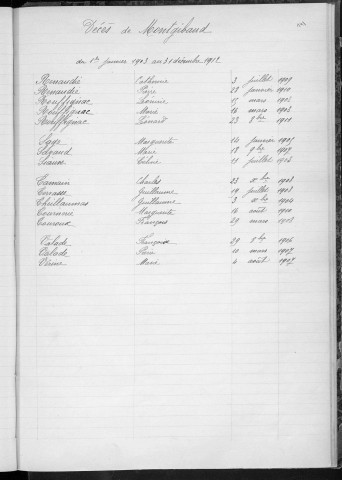 Décès de Montgibaud
du 1er janvier 1903 au 31 décembre 1912
Renaudie Catherine 3 juillet 1909
Renaudie Pierre 28 janvier 1910
Rouffignac 17 mars 1903
Rouffignac Marie 16 mars 1903
Rouffignac Léonard 23 8bre 1911
Sage Marguerite 14 janvier 1907
Segaud Marie 18 9bre 1909
Céline 11 juillet 1904
Tamain Charles 23 Xbre 1908
Guillaume 19 juillet 1903
Thuillaumas Guillaume 3 Xbre 1904
Marguerite 16 août 1910
François 29 mars 1908
Valade Françoise 29 1906
Valade Pierre 10 mars 1907
Marie 4 août 1907